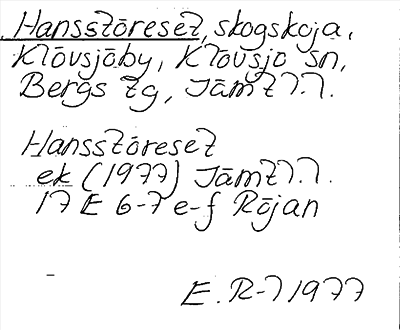 Hansstöreset, skogskoja,
Klövsjöby, Klövsjö sn,
Bergs tg, Jämtl.
Hansstöreset
ek (1977) Jämtl.
17 E 6-7 e-f Röjan
E. R-l 1977